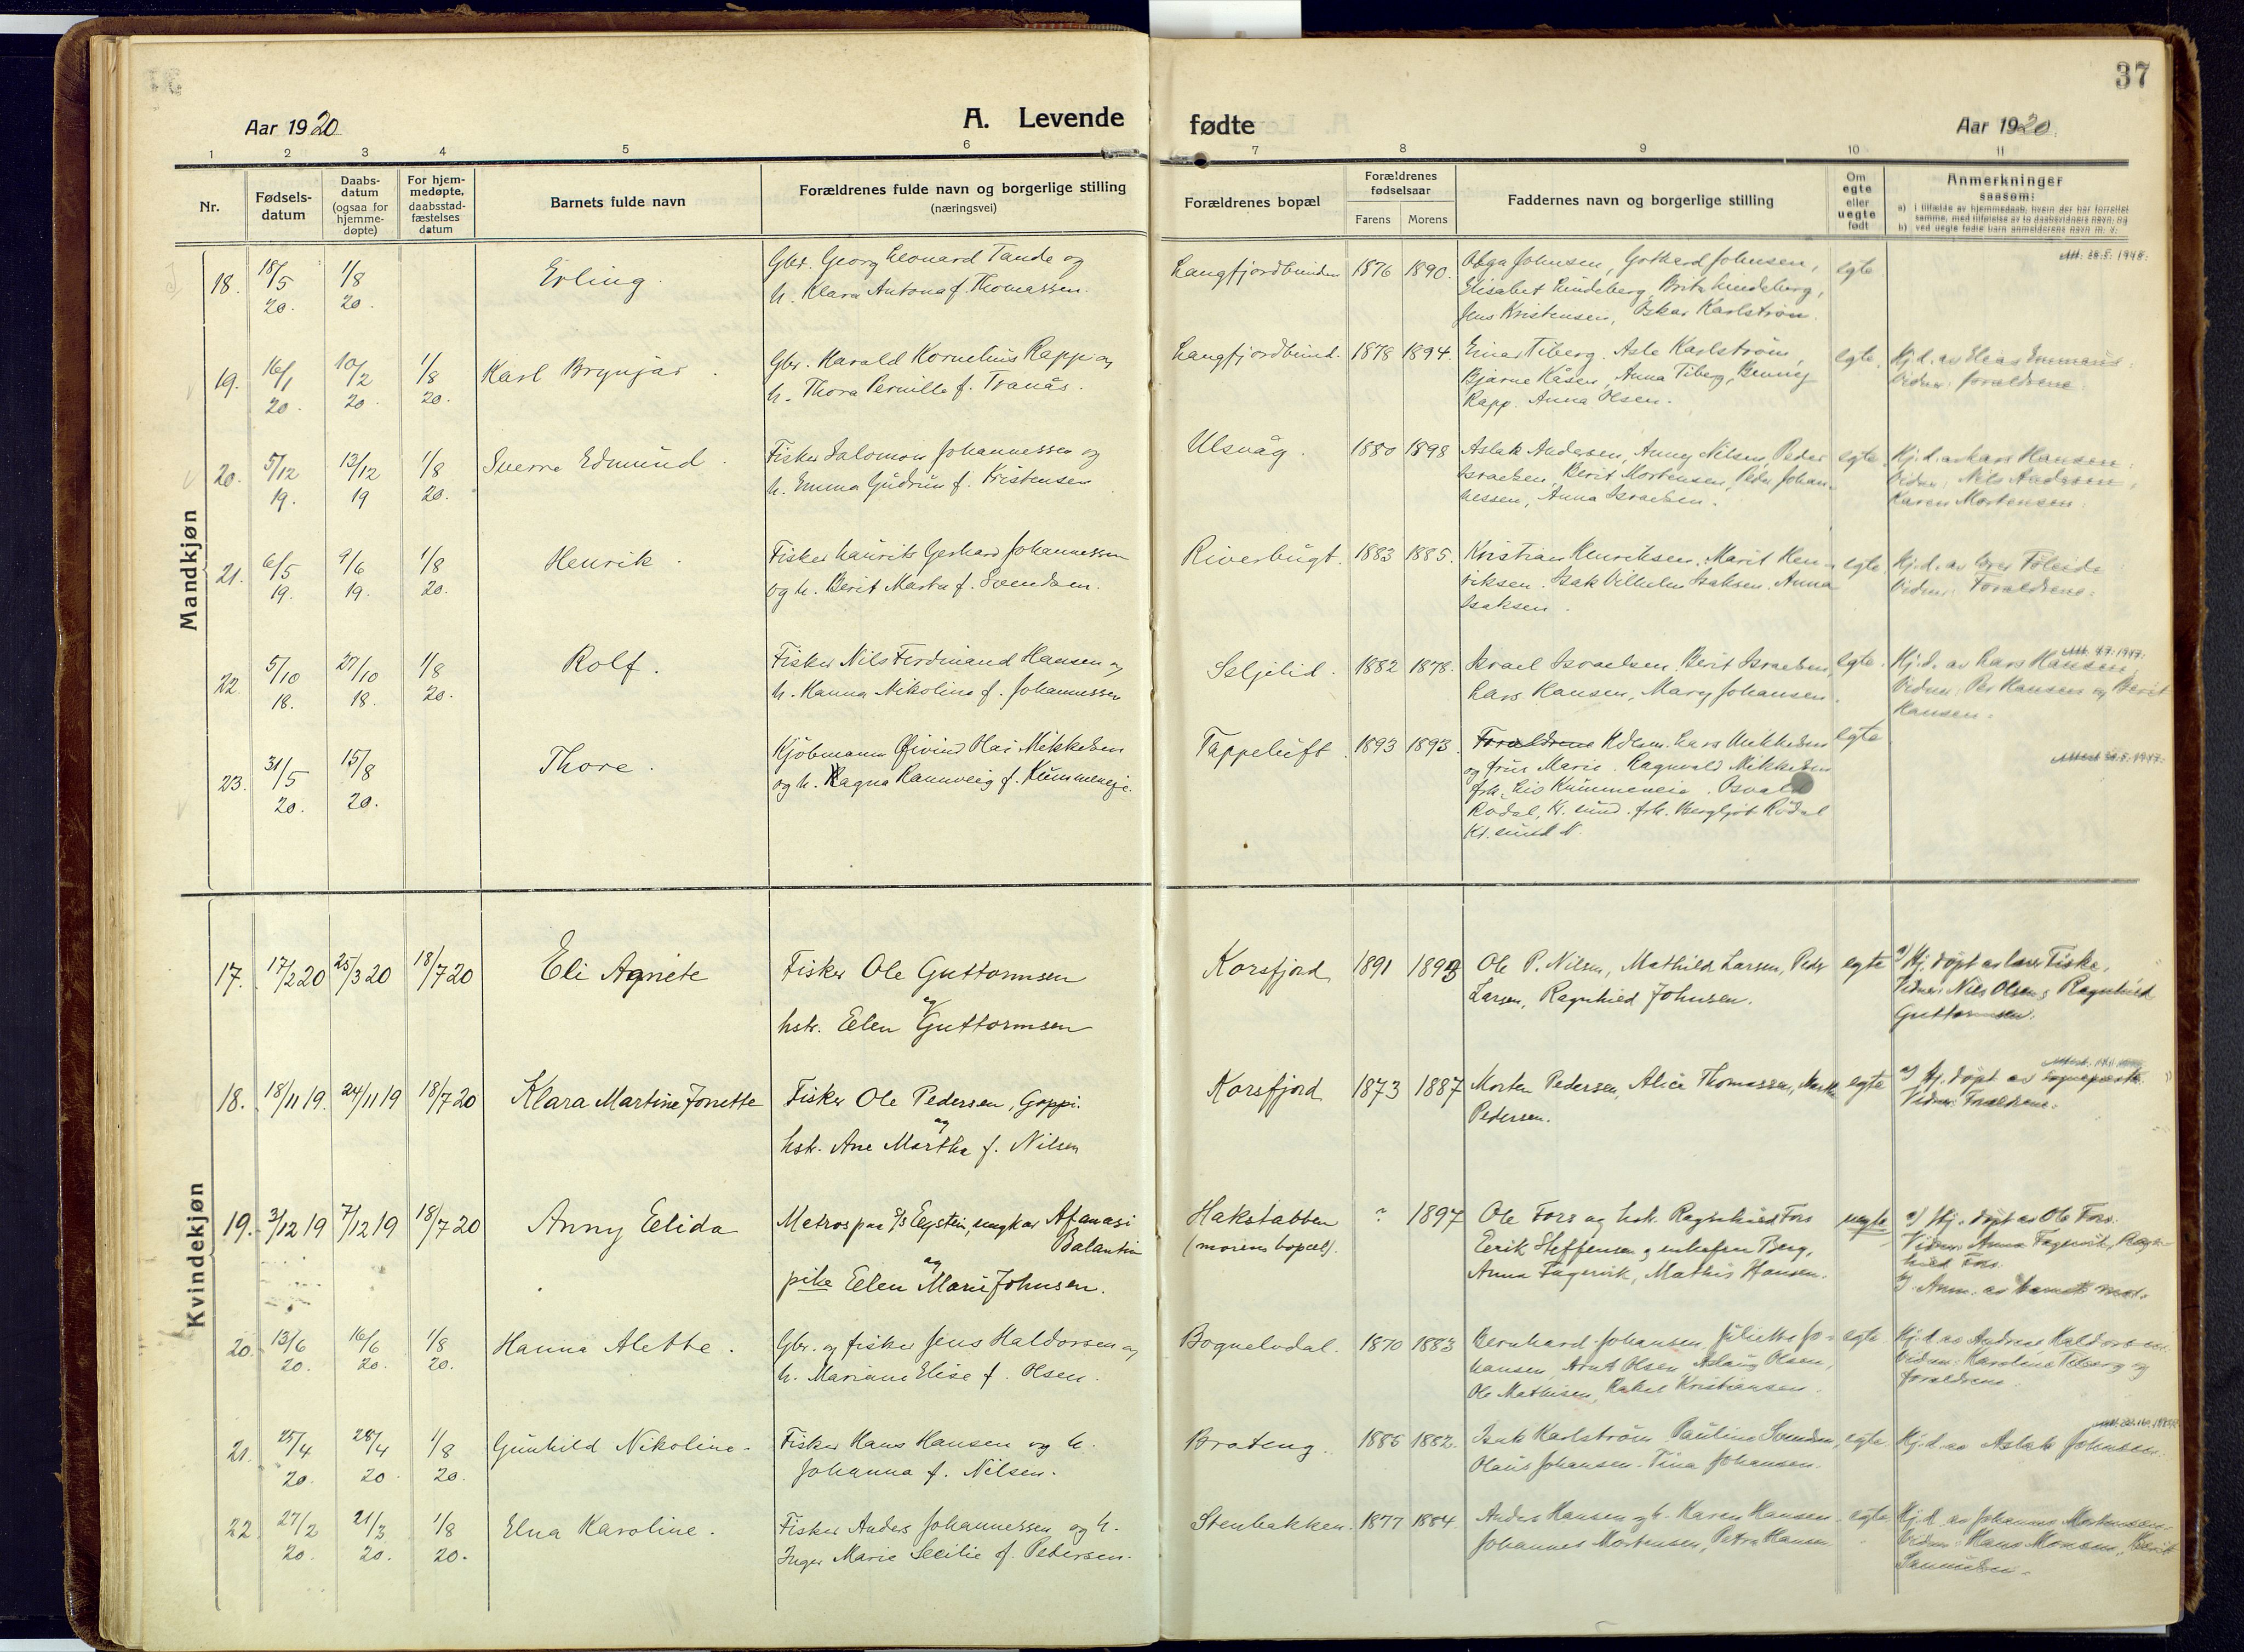 37
Aar 1920
A. Levende
fødte
Aar 1920.
1 2 3 4 5 6 7 8 9 10 11
Nr.
Fødsels-
datum
Daabs-
datum
(ogsaa for
hjemme-
døpte)
For hjem-
medøpte,
daabsstad-
fæstelses
datum
Barnets fulde navn
Forældrenes fulde navn og borgerlige stilling
(næringsvei)
Forældrenes bopæl
Forældrenes
fødselsaar
Farens Morens
Faddernes navn og borgerlige stilling
Om
egte
eller
uegte
født
Anmerkninger
saasom:
a) i tilfælde av hjemmedaab, hvem der har forrettet
samme, med tilføielse av to daabsvidners navn, og
b) ved uegte fødte barn anmelderens navn m. v.
Mandkjøn
18. 18/5 20. 1/8 20. Erling.
Gbr. Georg Leonard Tande og
h. Klara Antona f. Thomassen.
Langfjordbunden 1876 1890.
Olga Johnsen, Gotherd Johnsen,
Elisabet Lindeberg, Berta Lindeberg,
Jens Kristensen, Oskar Karlstrøm.
egte
Att. 28.5.1948.
19. 16/1 20. 10/2 20. 1/8 20. Karl Brynjar.
Gbr. Harald Kornelius Rapp og
h. Thora Pernille f. Tranås.
Langfjordbund. 1878 1894.
Einar Tiberg. Asle Karlstrøm,
Bjarne Kåsen, Anna Tiberg, Benny
Rapp. Anna Olsen.
egte.
Hj.d. av Elias Emmaus.
Vidner: forældrene.
20. 5/12 19. 13/12 19 1/8 20. Sverre Edmund.
Fisker Salomon Johannessen og
h. Emma Gudrun f. Kristensen
Ulsvåg. 1880 1898
Aslak Andersen, Anny Nilsen, Peder
Israelsen, Berit Mortensen, Peder Johan-
nessen, Anna Israelsen.
egte.
Hj.d. av Lars Hansen.
Vidner: Nils Andersen,
Karen Mortensen.
21. 6/5 19. 9/6 19. 1/8 20. Henrik.
Fisker Laurits Gerhard Johannessen
og h. Berit Marta f. Svendsen.
Riverbugt. 1883 1885.
Kristian Henriksen, Marit Hen-
riksen. Isak Vilhelm Isaksen. Anna
Isaksen.
egte
Vidner: Forældrene.
22. 5/10 18. 27/10 18. 1/8 20. Rolf.
Fisker Nils Ferdinand Hansen og
h. Hanna Nikoline f. Johannessen
Seljelid. 1882 1878.
Israel Israelsen. Berit Israelsen,
Lars Hansen, Mary Johansen.
egte.
Hj.d. av Lars Hansen,
Vidner: Per Hansen og Berit
Hansen.
23. 31/5 20. 15/8 20. Thore.
Kjøbmann Øivind Olai Mikkelsen
og h. Ragna Rannveig f. Kummeneje.
Tappeluft. 1893 1893.
Forældrene Kdlsm. Lars Mikkelsen
og frue Marie. Ragnvald Mikkelsen
frk. Lis Kummeneie. Osvald
Rødal, Kr. sund. frk. Bergljot Rødal
Kr. sund N.
egte
Kvindekjøn
17. 17/2 20 25/3 20 18/7 20 Eli Agnete
Fisker Ole Guttormsen
og
hstr. Elen Guttormsen
Korsfjord 1891 1893
Ole P. Nilsen, Mathilde Larsen, Peder
Larsen, Ragnhild Johnsen.
egte
a) Hj. døpt av lærer Fiske.
Vidner: Nils Olsen og Ragnhild
Guttormsen.
18. 18/11 19. 24/11 19 18/7 20 Klara Martine Jonette
Fisker Ole Pedersen, Goppi.
og
hstr. Ane Martha f. Nilsen
Korsfjord 1873 1887
Morten Pedersen, Alice Thomassen, Marth
Pedersen.
egte
a) Hj. døpt av sogneprest.
Vidner: Forældrene.
19. 3/12 19 7/12 19 18/7 20 Anny Elida
Matros paa S/S Eystein, ungkar Afanasi
Balantin
og
pike Elen Marie Johnsen.
Hakstabben ? 1897
(morens bopæl).
Ole Fors og hstr. Ragnhild Fors
Eerik Steffensen og enkefru Berg,
Anna Fagervik, Mathis Hansen.
uegte
a) Hj. døpt av Ole Fors.
Vidner: Anna Fagervik, Ragn-
hild Fors.
b) Anm. av barnets mor.
20. 13/6 20. 16/6 20. 1/8 20. Hanna Alette.
Gbr. og fisker Jens Haldorsen og
h. Mariane Elise f. Olsen.
Bognelvdal. 1870 1883
Bernhard Johansen, Julieke Jo-
hansen, Arnt Olsen, Aslaug Olsen,
Ole Mathisen, Rakel Kristiansen.
egte
Hj.d. av Andreas Haldorsen.
Vidner: Karoline Tiberg og
forældrene.
21. 25/4 20. 28/4 20. 1/8 20. Gunhild Nikoline.
Fisker Hans Hansen og h.
Johanna f. Nilsen.
Brateng. 1885 1882.
Isak Karlstrøm, Pauline Svendsen,
Olaus Johansen. Tina Johansen.
egte
Hj.d. av Aslak Johnsen.
22. 27/2 20. 21/3 20. 1/8 20. Elna Karoline.
Fisker Anders Johannessen og h.
Inger Marie Secilie f. Pedersen.
Stenbakken. 1877 1884.
Anders Hansen og h. Karen Hansen.
Johannes Mortensen, Petra Hansen.
egte
Hj.d. av Johannes Mortensen.
Vidner: Hans Monsen, Berit
Samuelsen.